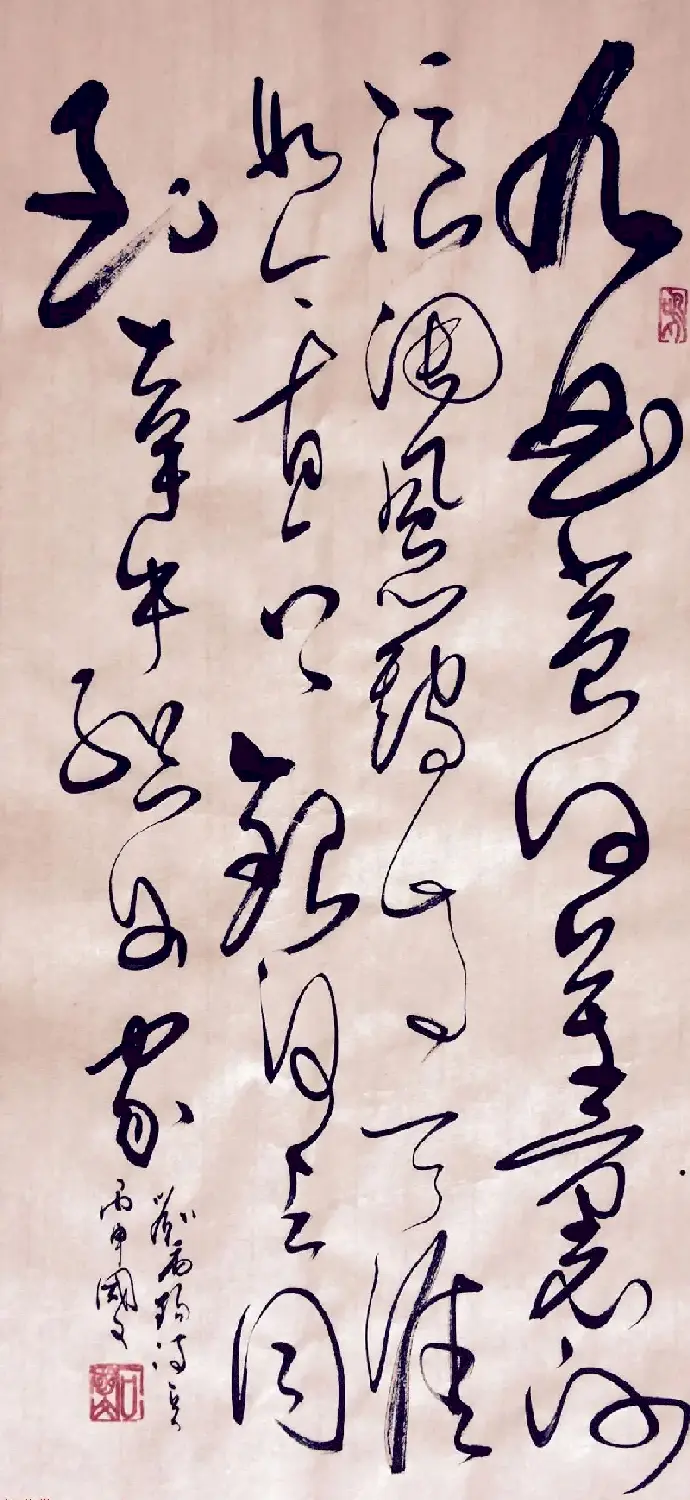 九曲黄河万里沙
浪淘风簸自天涯
如今直上银河去同
到牵牛织女家
刘禹锡诗 
丙申国文